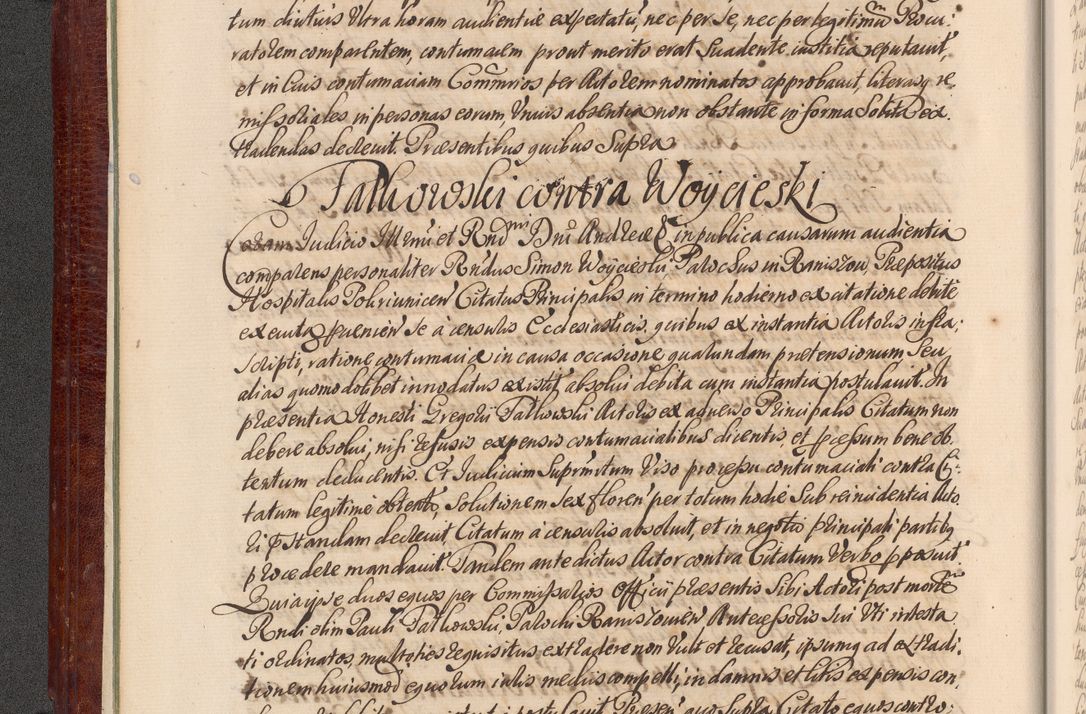 tum diutius Ultra horam audientiæ expectatū, nec per se, nec per legitimū Procu:
ratorem comparentem, contumacem prout merito erat Suadente iustitia reputavit,
et in Eius contumaciam Com̄rios per Actorem nominatos approbavit, literasq re-
missoriales in personas eorum Unius absentia non obstante in forma Solita ex.
tradendas decrevit. Præsentibus quibus Supra
Fatkowski contra Woycieski
Coram Iudicio Illmī et Rndmi Dni Andreæ in publica causarum audientia
comparens personaliter Rndus Simon Woycieski, Parochus in Raniszow, Præpositus
Hospitalis Citatus Principalis in termino hodierno ex citatione debite
executa se à censuris Ecclesiasticis, quibus ex instantia Actoris infra:
scripti, ratione contumaciæ in causa occasione quarundam prætensionum Seu
alias quomodolibet innodatus existit, absolui debita cum instantia postulavit. In
præsentia Honesti Gregorii Fatkowski Actoris ex adverso Principalis Citatum non
debere absolui, nisi refusis expensis contumacialibus dicentis, et pcessum bene ob.
tentum deducentis. Et Iudicium Suprmtum Viso processu contumaciali contra Ci-
tatum legitime obtento, Solutionem Sex floren per totum hodie Sub reincidentia Acto
ri pstandam decrevit, Citatum à censuris absoluit, et in negotio principali partibq
procedere mandavit. Tandem ante dictus Actor contra Citatum Verbo pposuit.
Quia ipse duos equos per Commissarios Officii præsentis Sibi Actori post mortē
Rndi olim Pauli Fatkowski, Parochi Raniszowien Antecessoris sui Uti intesta
ti ordinatos, multoties requisitus extradere non Vult et recusat, ipsumq ad extradi:
tionem huiusmodi equorum iuris mediis compelli, in damnis et litis expensis con,